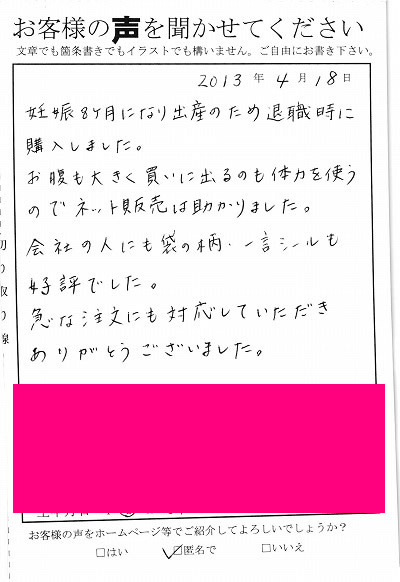 お客様の声を聞かせてください
文章でも箇条書きでもイラストでも構いません。ご自由にお書き下さい。
2013年4月18日
妊娠8ヶ月になり出産のため退職時に
購入しました。
お腹も大きく買いに出るのも体力を使う
のでネット販売は助かりました。
会社の人にも袋の柄・一言シールも
好評でした。
急な注文にも対応していただき
ありがとうございました。
切り取り線
お客様の声をホームページ等でご紹介してよろしいでしょうか？
□はい ☑匿名で □いいえ